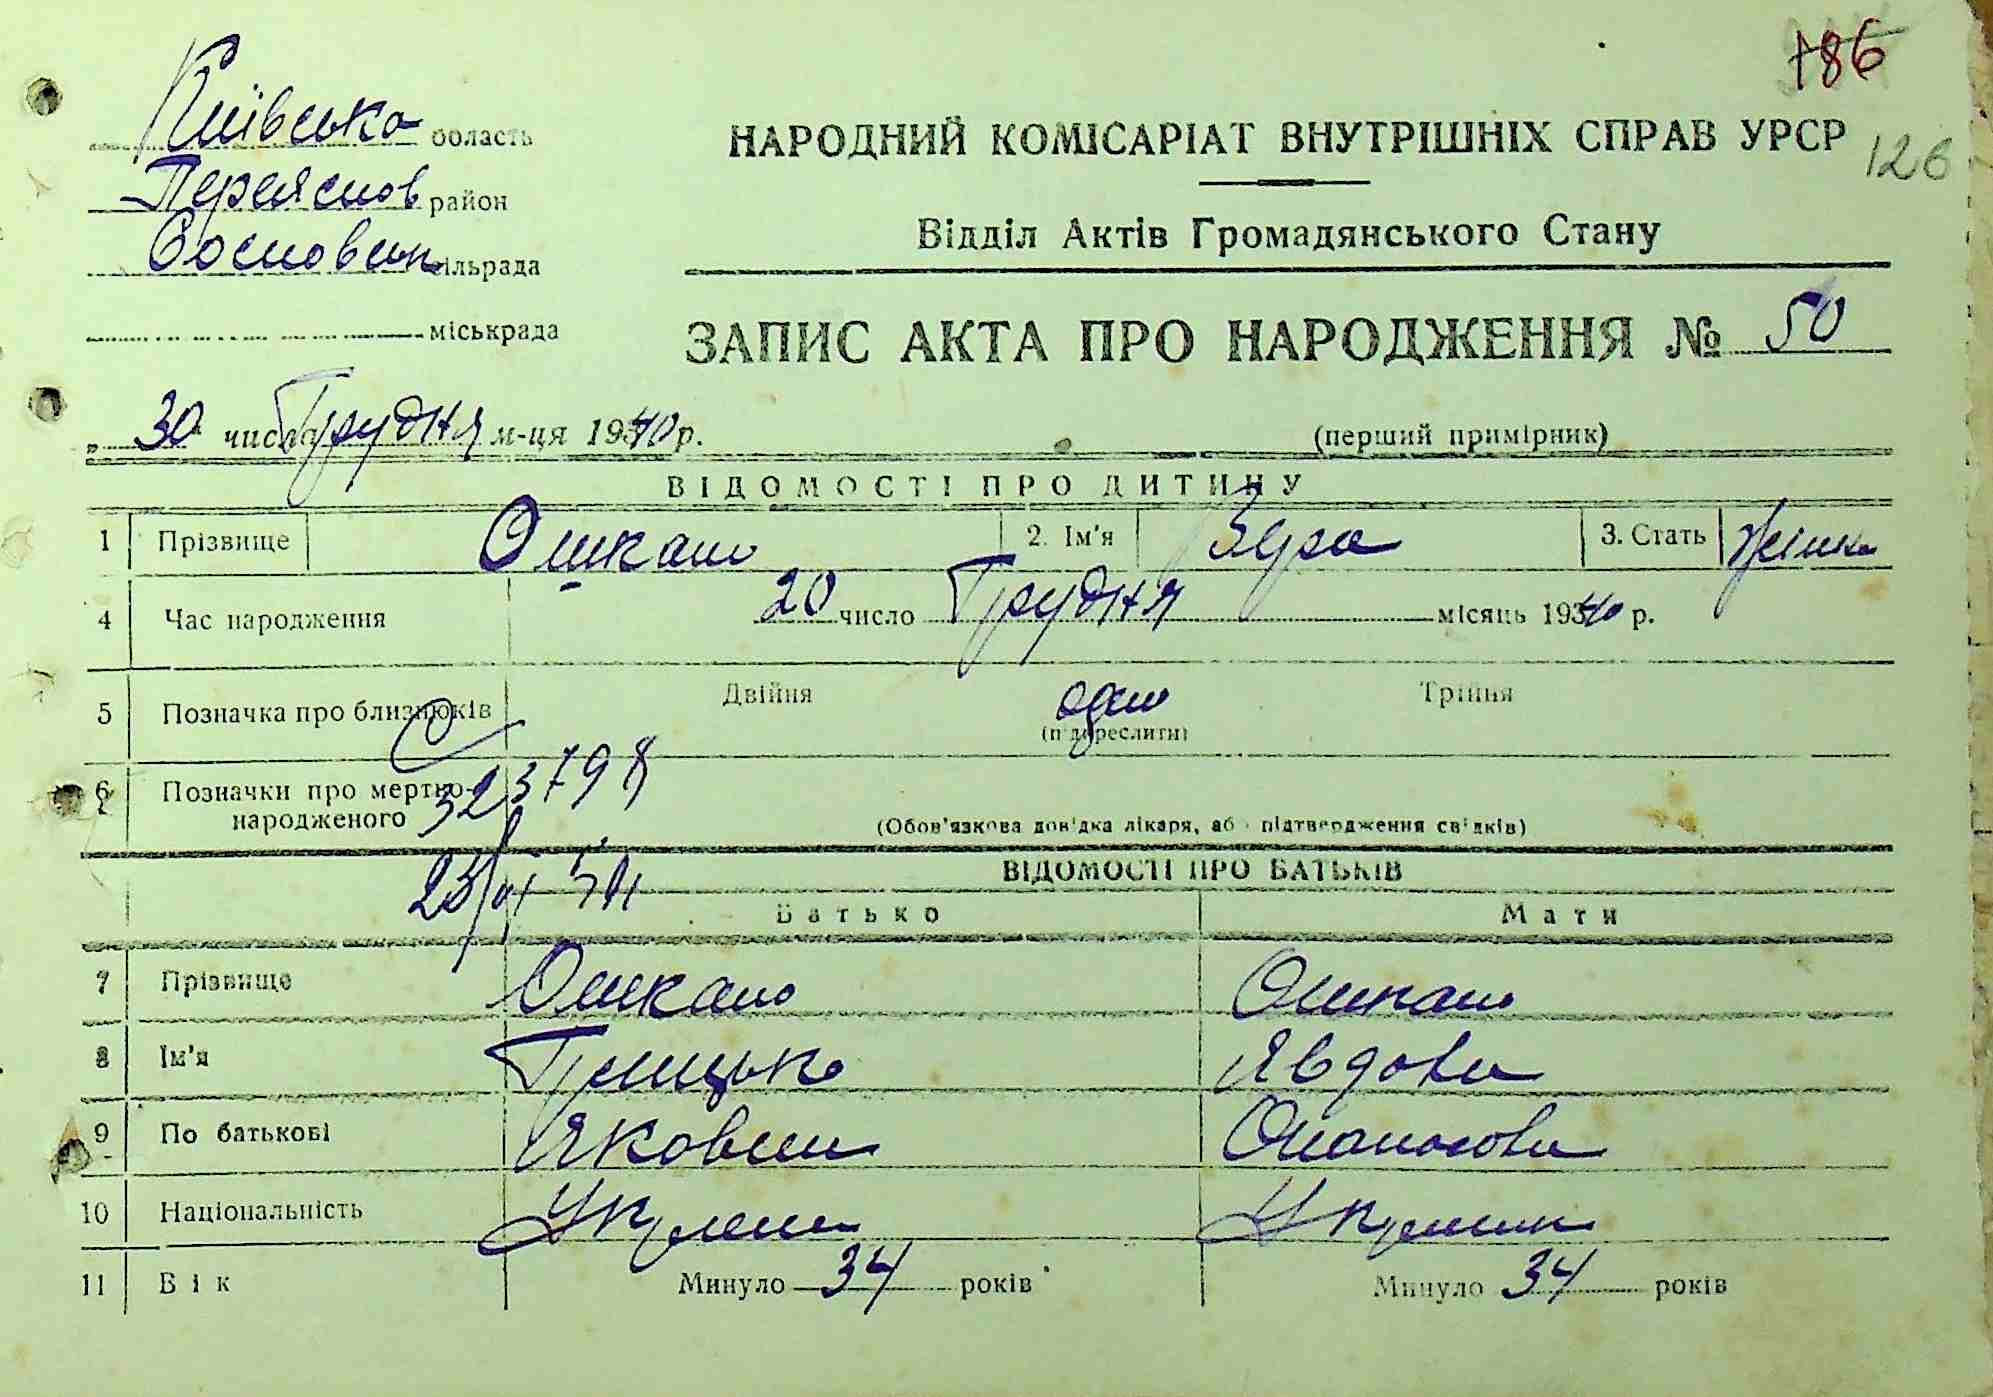 186
126
Київська область
Переяслов район
Сосновськ сільрада
міськрада
НАРОДНИЙ КОМІСАРІАТ ВНУТРІШНІХ СПРАВ УРСР
Відділ Актів Громадянського Стану
ЗАПИС АКТА ПРО НАРОДЖЕННЯ № 50
„ 30 " число Грудня м-ця 1940 р.
(перший примірник)
ВІДОМОСТІ ПРО ДИТИНУ
1 Прізвище Ошкало 2. Ім'я 3. Стать Жіноча
4 Час народження 20 число Грудня місяць 1940 р.
5 Позначка про близнюків Двійня одно Трійня
(підкреслити)
6 Позначки про мертво-
народженого
(Обов'язкова довідка лікаря, або підтвердження свідків)
ВІДОМОСТІ ПРО БАТЬКІВ
Батько Мати
7 Прізвище Ошкало Ошкало
8 Ім'я Грицько Явдоха
9 По батькові Якович Опанасовна
10 Національність
11 Вік Минуло 34 років Минуло 34 років